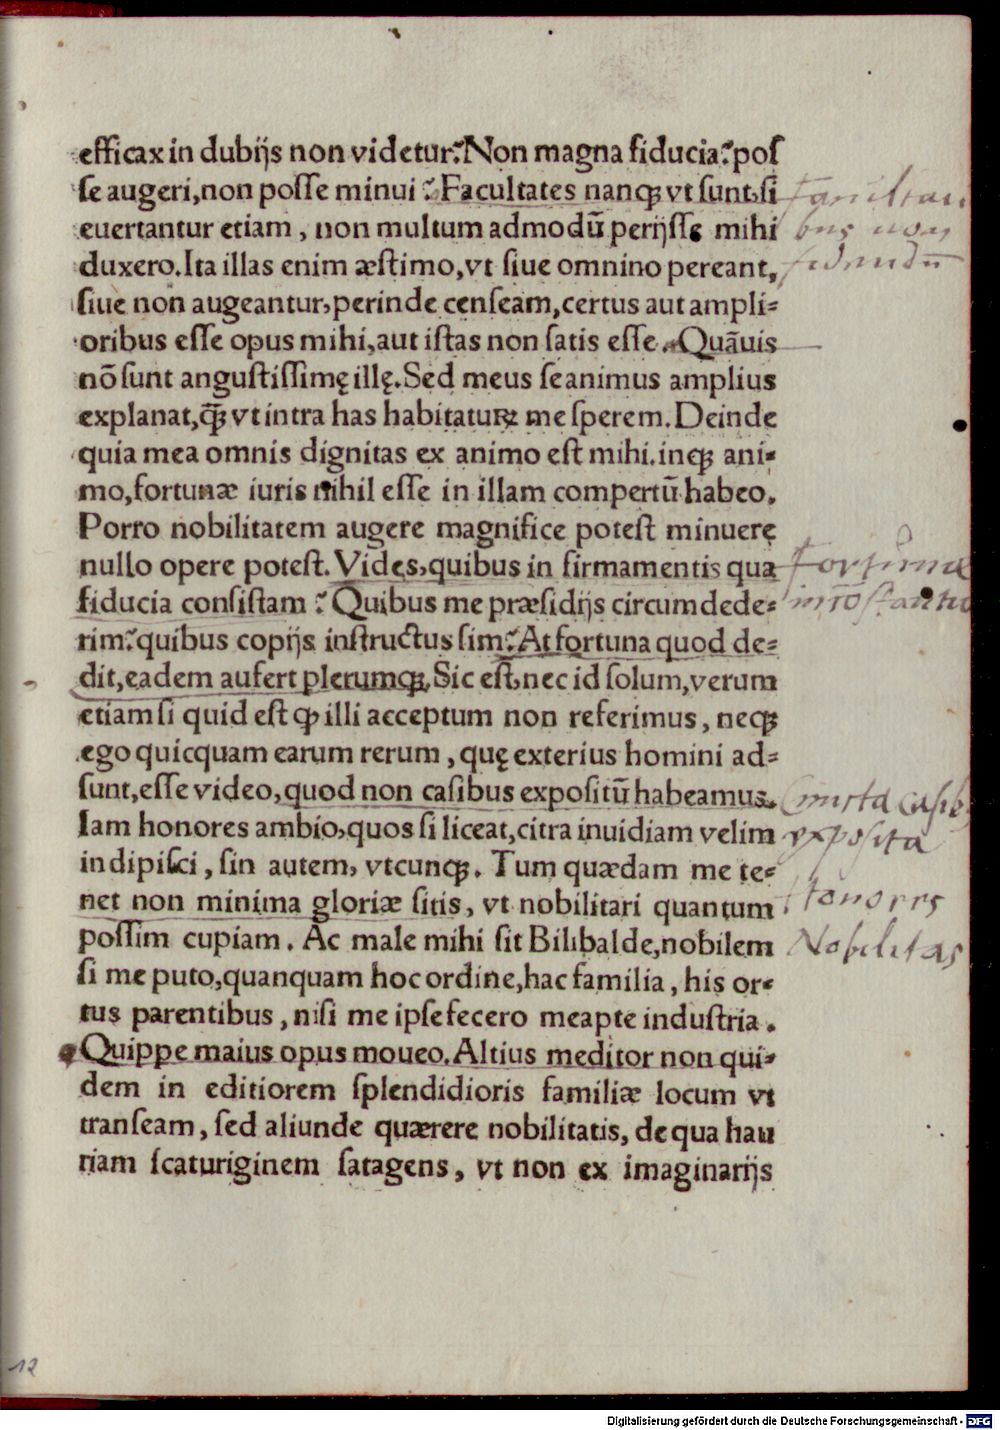 efficax in dubijs non videtur? Non magna fiducia? poſ
ſe augeri, non poſſe minui? Facultates nanqꝫ vt ſunt, ſi
euertantur etiam, non multum admodū perijſſe mihi
duxero. Ita illas enim æſtimo, vt ſiue omnino pereant,
ſiue non augeantur, perinde cenſeam, certus aut ampli⸗
oribus eſſe opus mihi, aut iſtas non ſatis eſſe. Quāuis
nō ſunt anguſtiſſimę illę. Sed meus ſe animus amplius
explanat, q̃ꝫ vt intra has habitaturꝫ me ſperem. Deinde
quia mea omnis dignitas ex animo eſt mihi. inqꝫ ani⸗
mo, fortunæ iuris nihil eſſe in illam compertū habeo.
Porro nobilitatem augere magnifice poteſt minuere
nullo opere poteſt. Vides, quibus in firmamentis qua
fiducia conſiſtam? Quibus me præſidijs circumdede⸗
rim? quibus copijs inſtructus ſim? At fortuna quod de⸗
dit, eadem aufert plerumqꝫ. Sic eſt, nec id ſolum, verum
etiam ſi quid eſt ꝙ illi acceptum non referimus, neqꝫ
ego quicquam earum rerum, quę exterius homini ad⸗
ſunt, eſſe video, quod non caſibus expoſitū habeamus.
Iam honores ambio, quos ſi liceat, citra inuidiam velim
indipiſci, ſin autem, vtcunqꝫ. Tum quædam me te⸗
net non minima gloriæ ſitis, vt nobilitari quantum
poſſim cupiam. Ac male mihi ſit Bilibalde, nobilem
ſi me puto, quanquam hoc ordine, hac familia, his or⸗
tus parentibus, niſi me ipſe fecero meapte induſtria.
Quippe maius opus moueo. Altius meditor non qui⸗
dem in editiorem ſplendidioris familiæ locum vt
tranſeam, ſed aliunde quærere nobilitatis, de qua hau
riam ſcaturiginem ſatagens, vt non ex imaginarijs
Facultati
bus non
fidendū
Fortunæ
incōstantia
Cuncta casib
exposita
Honores
Nobilitas
12
Digitalisierung gefördert durch die Deutsche Forschungsgemeinschaft - DFG